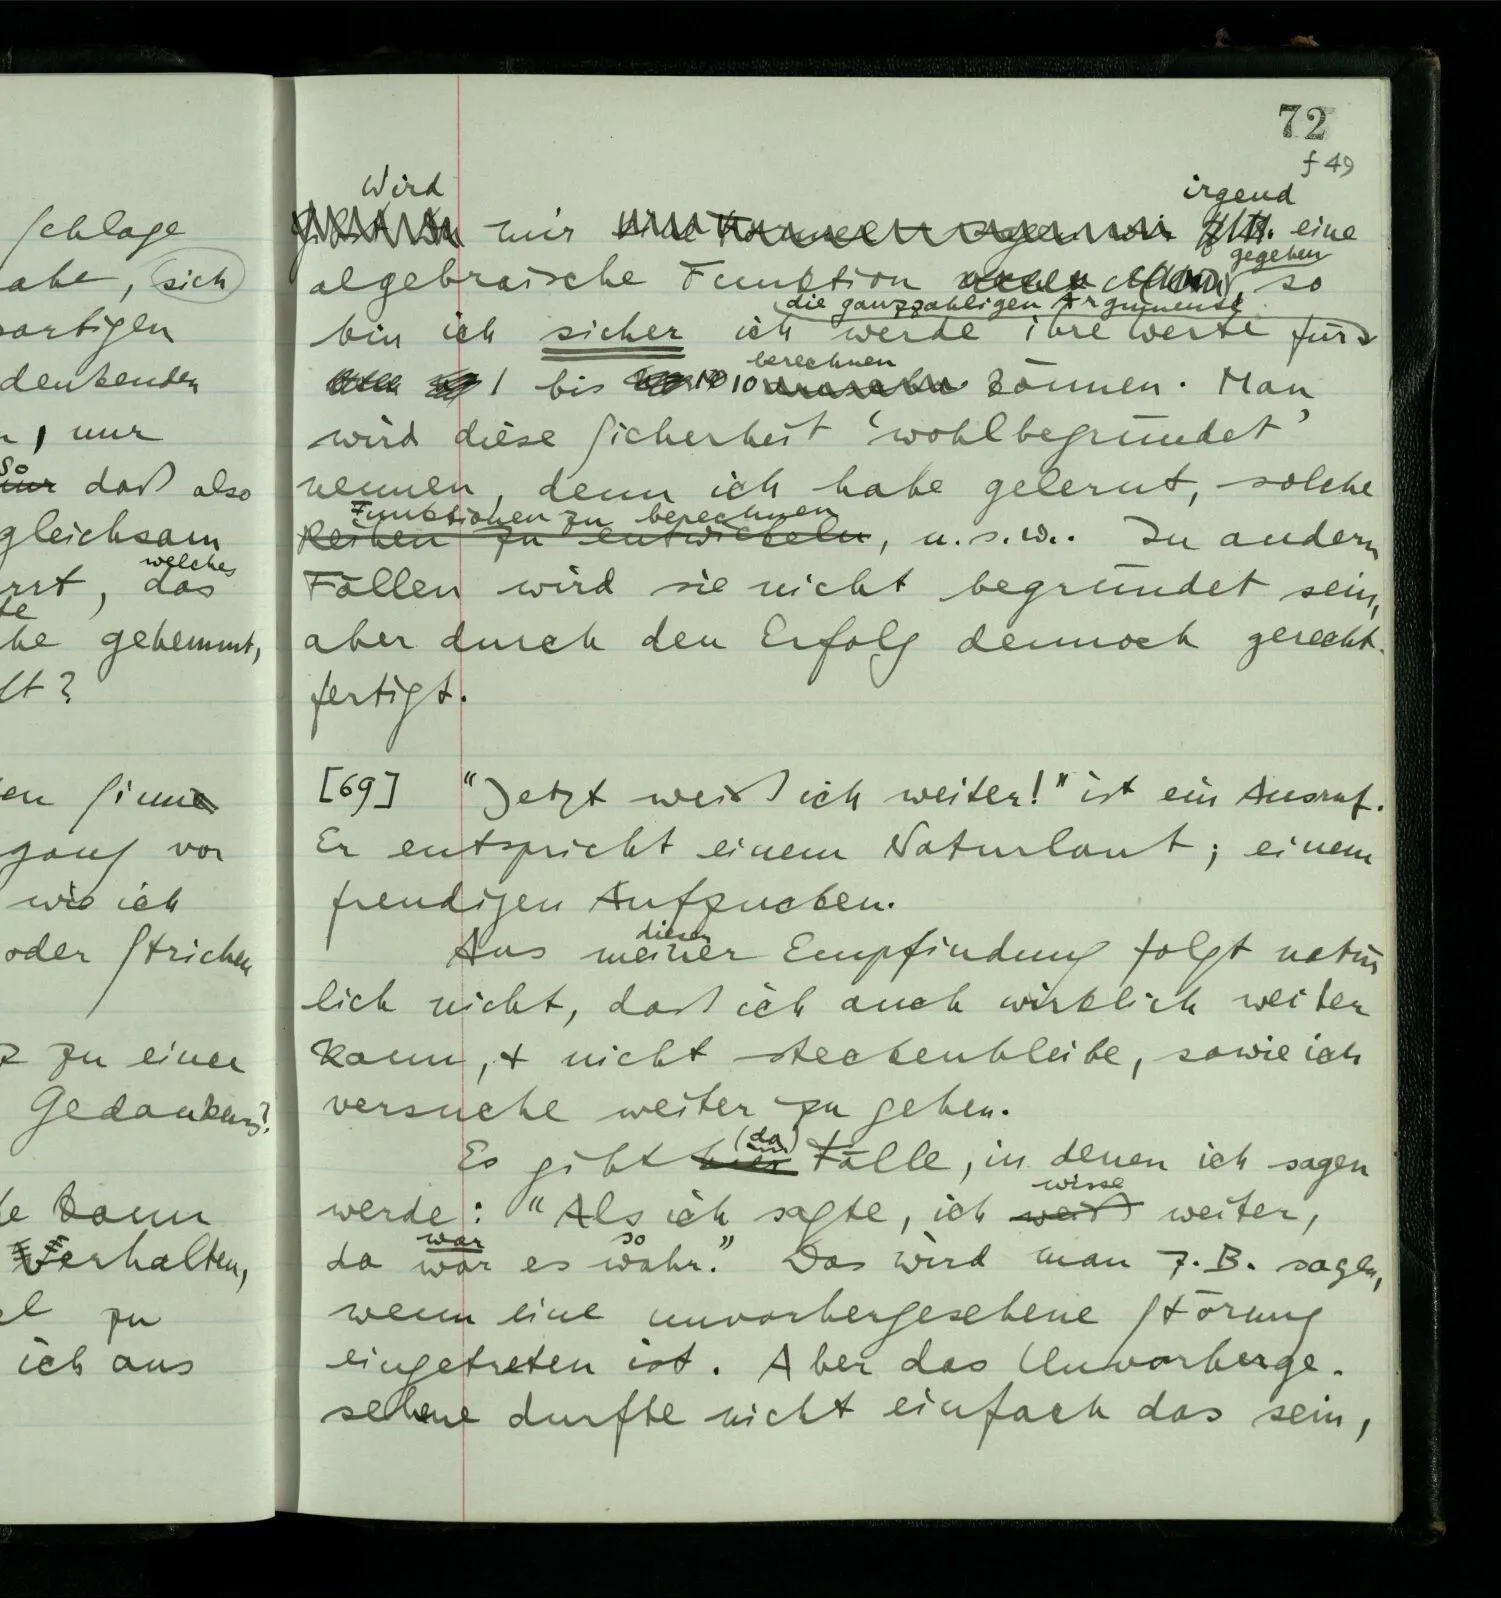 schlage
abe, sich
artigen
denkenden
, nur
so
nur daß also
gleichsam
welches
rrt, das
te
he gehemmt,
lt?
en Sinne
gang vor
wie ich
oder Strichen
z zu einer
Gedankens?
te kann
Verhalten,
el zu
ich aus
72
f 49
Wird irgend
mir eine
gegeben
algebraische Funktion , so
die ganzzahligen Argumente
bin ich sicher ich werde ihre Werte für
berechnen
1 bis 10 können. Man
wird diese Sicherheit ‘wohlbegründet’
nennen, denn ich habe gelernt, solche
Funktionen zu berechnen
Reihen zu entwickeln, u.s.w.. In andern
Fällen wird sie nicht begründet sein,
aber durch den Erfolg dennoch gerecht-
fertigt.
[69] “Jetzt weiß ich weiter!” ist ein Ausruf.
Er entspricht einem Naturlaut; einem
freudigen Aufzucken.
dieser
Aus meiner Empfindung folgt natür
lich nicht, daß ich auch wirklich weiter
kann, + nicht steckenbleibe, sowie ich
versuche weiter zu gehen.
(da)
Es gibt hier Fälle, in denen ich sagen
wisse
werde: “Als ich sagte, ich weiß weiter,
war so
da war es wahr.” Das wird man z.B. sagen,
wenn eine unvorhergesehene Störung
eingetreten ist. Aber das Unvorherge-
sehene durfte nicht einfach das sein,